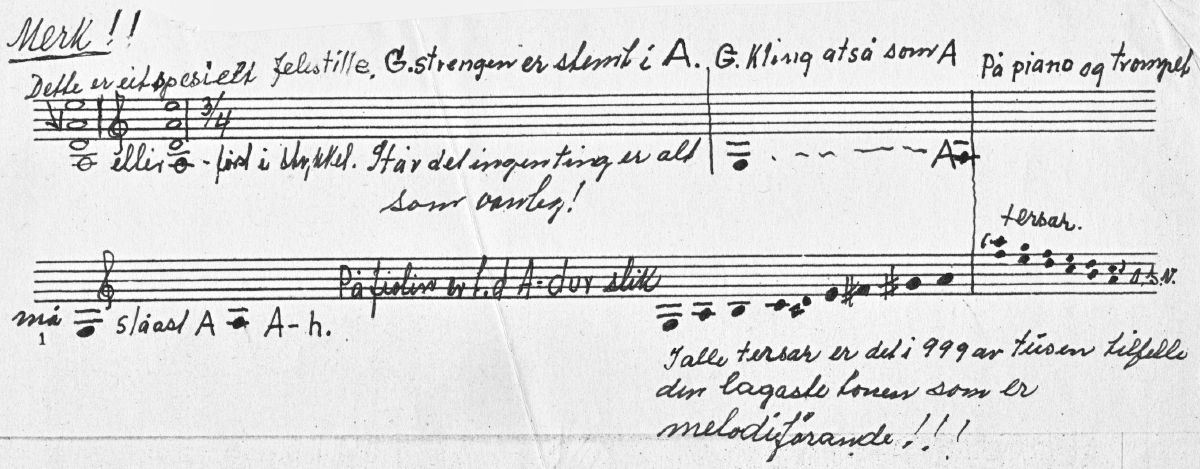 Merk!!
Dette er eit spesielt felestille. G.strengen er stemt i A. G. Kling atså som A På piano og trompet
3/4
eller - først i stykket. Står det ingenting er alt A
som vanleg!
tersar.
På fiolin er t.d A-dur slik o.s.v.
må slåast A A-h.
1
I alle tersar er det i 999 av tusen tilfelle
den lagaste tonen som er
melodiførande!!!